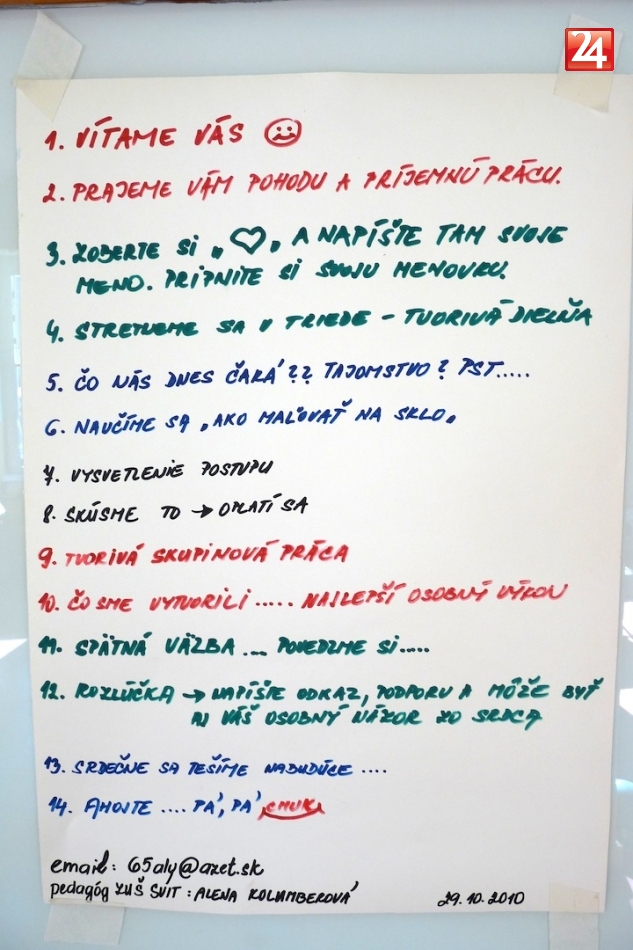 24
1. VÍTAME VÁS
2. PRAJEME VÁM POHODU A PRÍJEMNÚ PRÁCU.
3. ZOBERTE SI „ ♡ „ A NAPÍŠTE TAM SVOJE
MENO. PRIPNITE SI SVOJU MENOVKU.
4. STRETNEME SA V TRIEDE - TVORIVÁ DIELŇA
5. ČO NÁS DNES ČAKÁ?? TAJOMSTVO? PST.....
6. NAUČÍME SA „AKO MAĽOVAŤ NA SKLO„
7. VYSVETLENIE POSTUPU
8. SKÚSME TO → OPLATÍ SA
9. TVORIVÁ SKUPINOVÁ PRÁCA
10. ČO SME VYTVORILI ..... NAJLEPŠÍ OSOBNÝ VÝKON
11. SPÄTNÁ VÄZBA ... POVEDZME SI.....
12. ROZLÚČKA → NAPÍŠTE ODKAZ, PODPORU A MÔŽE BYŤ
AJ VÁŠ OSOBNÝ NÁZOR ZO SRDCA
13. SRDEČNE SA TEŠÍME NABUDÚCE ....
14. AHOJTE .... PÁ, PÁ CMUK
email: 65aly@azet.sk
pedagóg ZUŠ SVIT : ALENA KOLUMBEROVÁ 29.10.2010